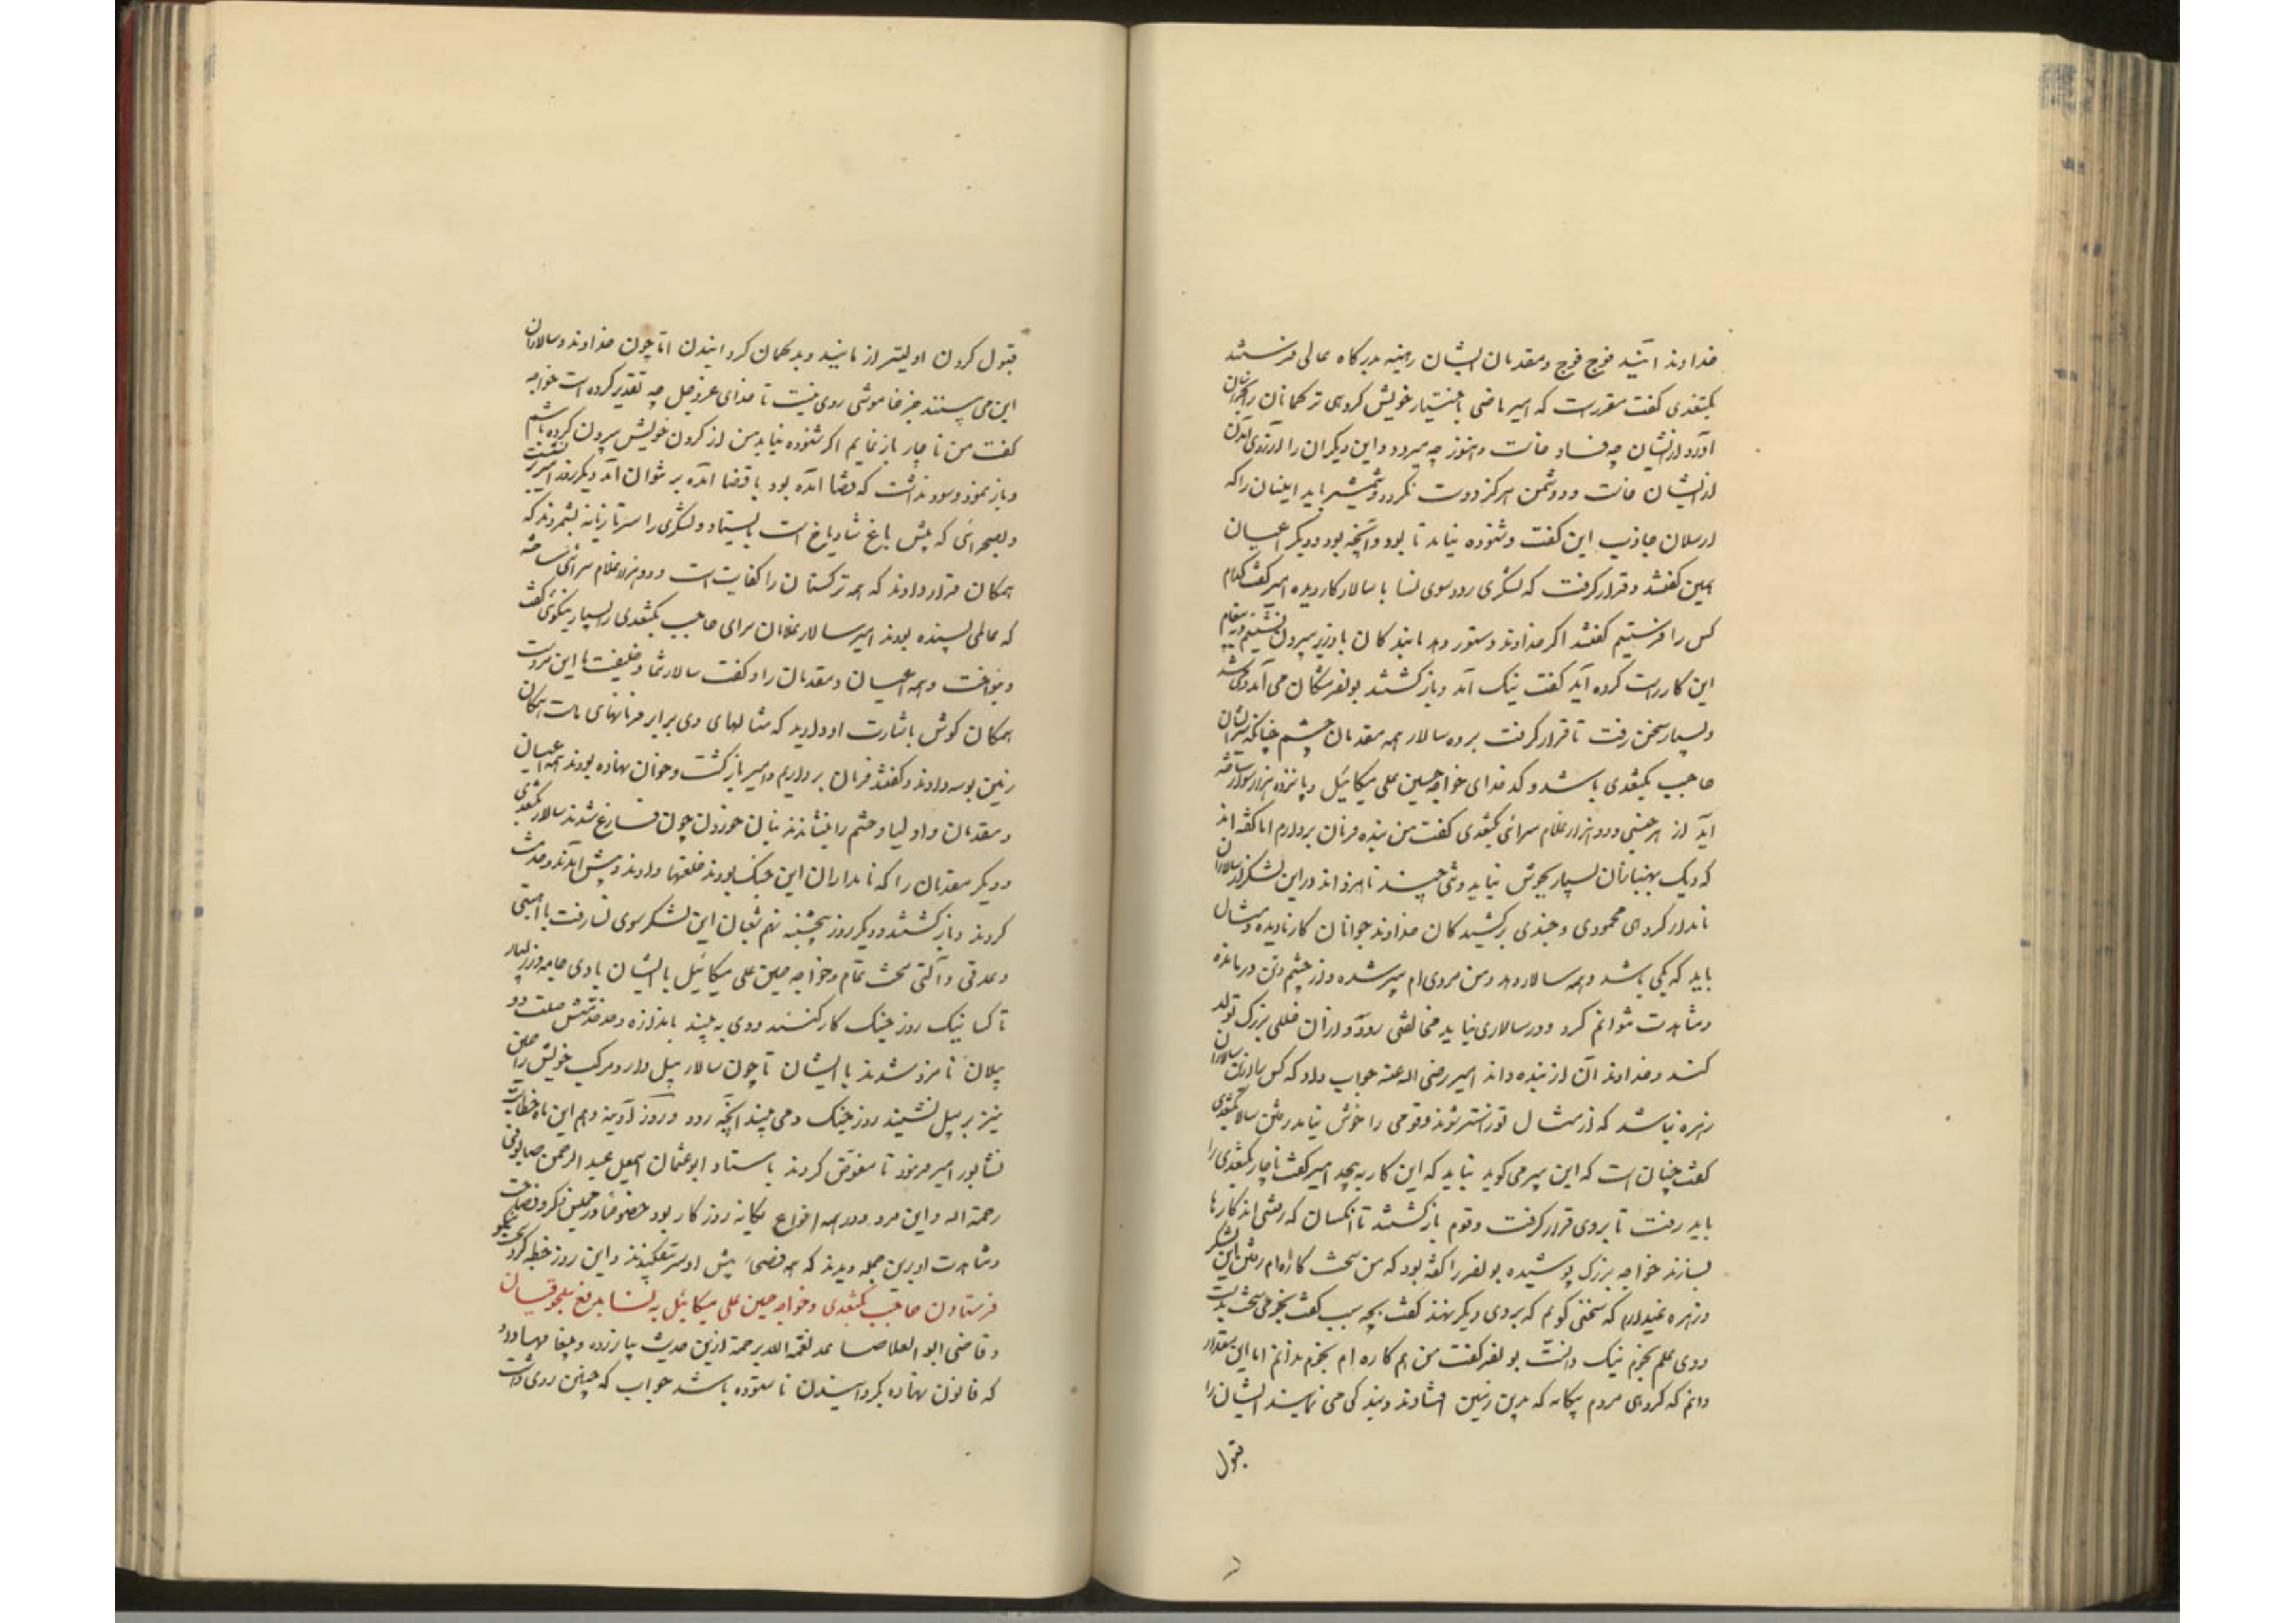 خداوند آیند فوج فوج و مقدمان ایشان رهینه بدرگاه عالی فرستند
بکتغدی گفت مقررست که امیر ماضی باختیار خویش گروهی ترکمانان را بخراسان
آورد از ایشان چه فساد خاست و هنوز چه میرود و این دیگران را آرزوی آمدن
از ایشان خاست و دشمن هرگز دوست نگردد شمشیر باید اینان را که
ارسلان جاذب این گفت و شنوده نیامد تا بود و آنچه بود و دیگر اعیان
همین گفتند و قرار گرفت که لشکری رود سوی نسا با سالار کاردیده امیر گفت کدام
کس را فرستیم گفتند اگر خداوند دستور دهد ما بندگان با وزیر بیرون نشینیم و به پیغام
این کار راست کرده آید گفت نیک آمد و بازگشتند بونصر مشکان می آمد و می شد
و بسیار سخن رفت تا قرار گرفت برده سالار همه مقدمان حشم چنانکه سرایشان
حاجب بکتغدی باشد و کدخدای خواجه حسین علی میکائیل و پانزده هزار سوار ساخته
آید از هر جنسی و دو هزار غلام سرائی بکتغدی گفت من بنده فرمان بردارم اما گفته اند
که دیک بهنبازان بسیار بجوش نیاید و تنی چند نامزد اند در این لشکر از سالاران
نامدار گروهی محمودی و چندی برکشیدگان خداوند جوانان کار نادیده و مثال
باید که یکی باشد و همه سالار دهد و من مردی ام پیر شده و از چشم و تن درمانده
و مشاهدت نتوانم کرد و در سالاری نباید مخالفتی رود و از آن خللی بزرگ تولد
کند و خداوند آن از بنده داند امیر رضی اله عنه جواب داد که کس را از این سالاران
زهره نباشد که از مثال تو زاستر شوند و قومی را خوش نیامد رفتن سالار بکتغدی
گفت چنان است که این پیر می گوید نباید که این کار بپیچد امیر گفت ناچار بکتغدی را
باید رفت تا بروی قرار گرفت و قوم بازگشتند تا آنکسان که رفتنی اند کارها
بسازند خواجه بزرگ پوشیده بونصر را گفته بود که من سخت کاره ام رفتن این لشکر
و زهره نمیدارم که سخنی گویم که بروی دیگر نهند گفت بچه سبب گفت بنجوم سخت بدست
و وی علم نجوم نیک دانست بونصر گفت من هم کاره ام نجوم ندانم اما این مقدار
دانم که گروهی مردم بیگانه که بدین زمین افتادند و بندگی می نمایند ایشان را
قبول
قبول کردن اولیتر از مانید و بدگمان گردانیدن اما چون خداوند و سالاران
این می بینند جز خاموشی روی نیست تا خدای عزوجل چه تقدیر کرده است خواجه
گفت من ناچار باز نمایم اگر شنوده نیاید من از گردن خویش بیرون کرده باشم
و باز نمود و سود نداشت که قضا آمده بود با قضا آمده بر نتوان آمد دیگر روز امیر بر نشست
و بصحرائی که پیش باغ شادیاخ است بایستاد و لشکری را سرتازیانه بشمردند که
همگان قرار دادند که همه ترکستان را کفایت است و دو هزار غلام سرائی ساخته
که عالمی بسنده بودند امیر سالار غلامان سرای حاجب بکتغدی را بسیار نیکوئی گفت
و بنواخت و همه اعیان و مقدمان را گفت سالار شما و خلیفت ما این مردست
همگان گوش باشارت او دارید که مثالهای وی برابر فرمانهای ماست همگان
زمین بوسه دادند و گفتند فرمان برداریم و امیر بازگشت و خوان نهاده بودند همه اعیان
و مقدمان و اولیا و حشم را بنشاندند بنان خوردن چون فارغ شدند سالار بکتغدی
و دیگر مقدمان را که نامداران این جنگ بودند خلعتها دادند و پیش آمدند و خدمت
کردند و بازگشتند و دیگر روز پنجشنبه نهم شعبان این لشکر سوی نسا رفت با اهبتی
و عدتی و آلتی سخت تمام و خواجه حسین علی میکائیل با ایشان با وی جامه و زر بسیار
تا کسانیک روز جنگ کار کنند و وی به بیند باندازه و حد خدمتش صلت دو
پیلان نامزد شدند با ایشان تا چون سالار پیل دارد مرکب خویش را حسین
نیز بر پیل نشیند روز جنگ و می بیند آنچه رود و روز آدینه دهم این ماه خطابت
نشابور امیر فرمود تا مفوض کردند باستاد ابوعثمان اسمعیل عبد الرحمن صابونی
رحمة اله و این مرد در همه انواع یگانه روزگار بود خصوصا در مجلس ذکر و فصاحت
و مشاهدت او برین جمله دیدند که همه فصحا پیش او سر بتفکیدند و این روز خطبه کرد سخت نیکو
فرستادن حاجب بکتغدی و خواجه حسین علی میکائیل به نسا بدفع سلجوقیان
و قاضی ابوالعلا صاعد تغمه الله برحمة ازین حدیث بیازرده و پیغامها داد
که قانون نهاده بگردانیدن ناستوده باشد جواب که چنین روی داشت